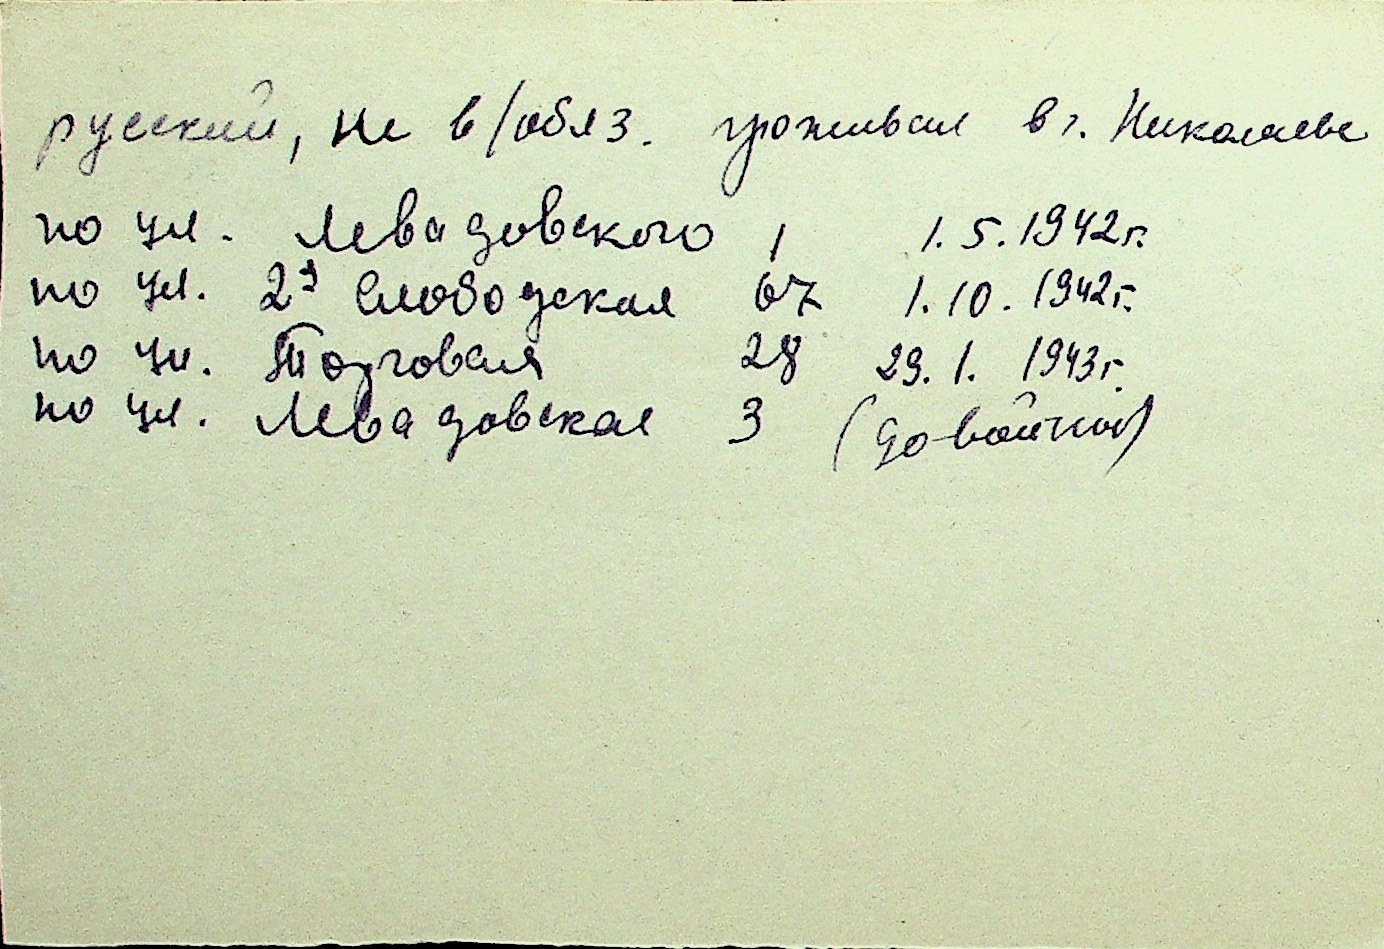 русский, не в/обяз. проживал в г. Николаеве
по ул. Левадовского 1 1.5.1942г.
по ул. 2я Слободская 67 1.10.1942г.
по ул. Торговая 28 29.1.1943г.
по ул. Левадовская 3 (до войны)